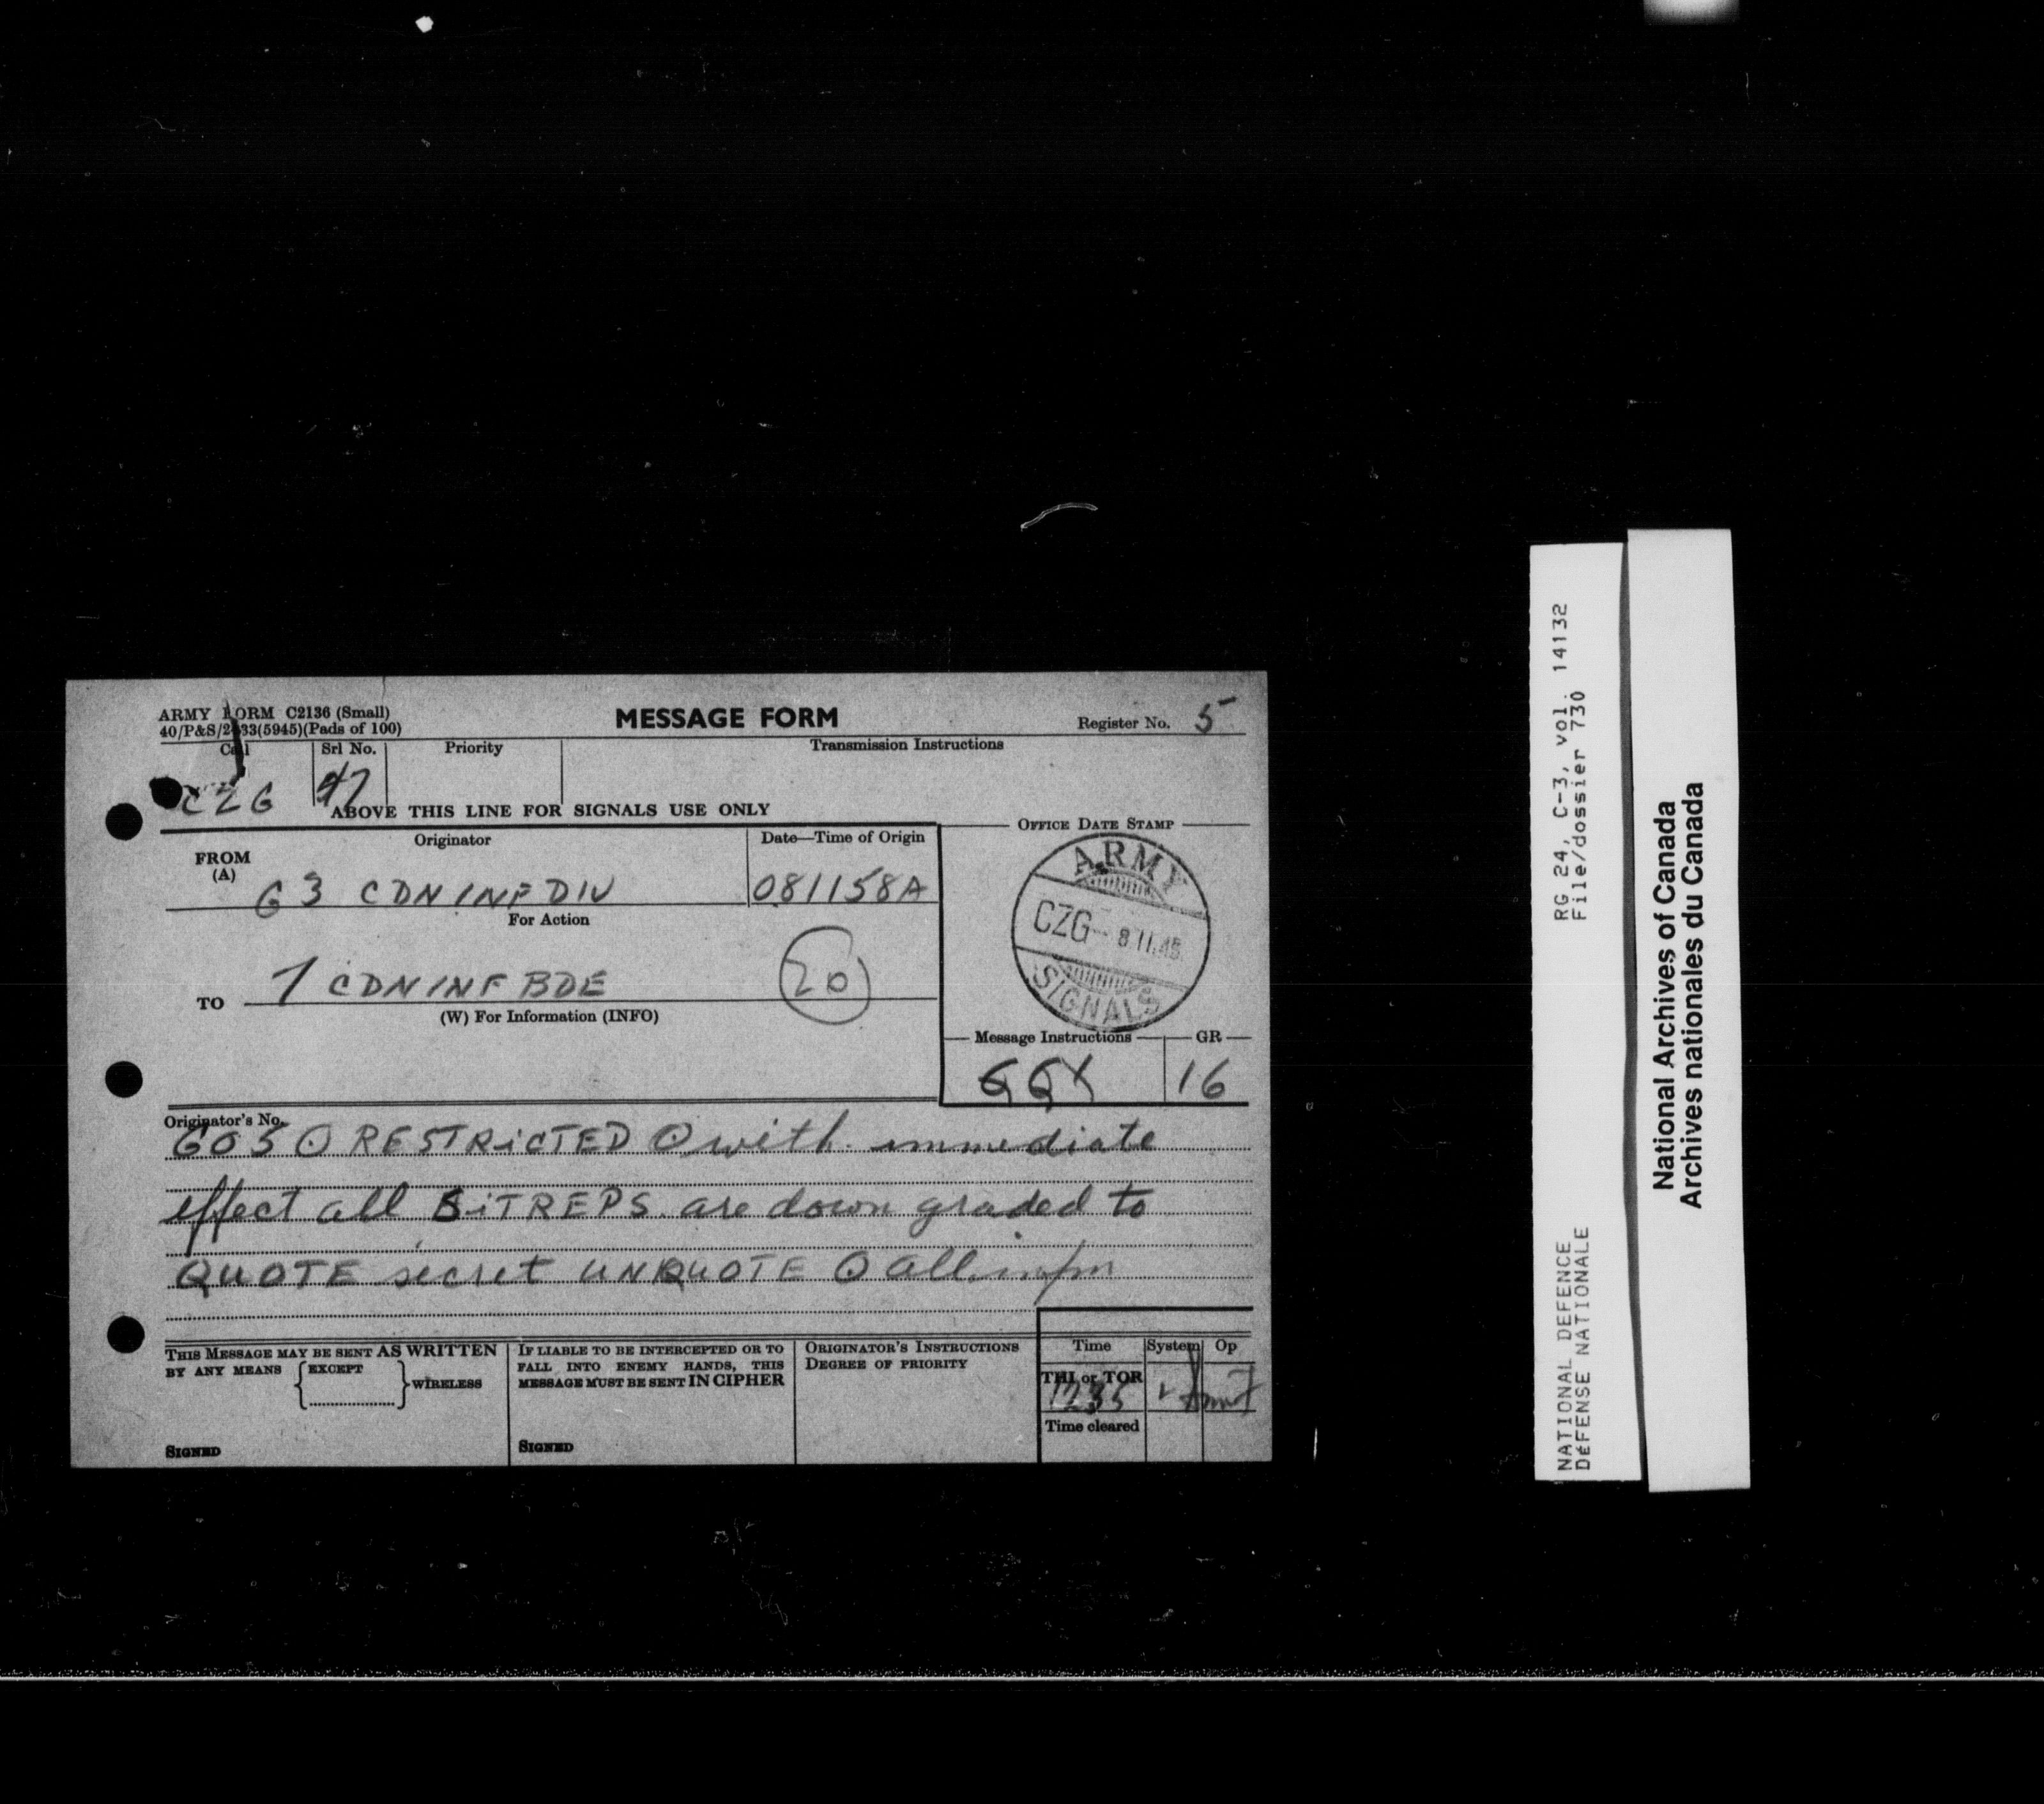 ARMY FORM C2136 (Small)
40/P&S/2433(5945)(Pads of 100)
MESSAGE FORM
Register No. 5
Call
Srl No.
Priority
Transmission Instructions
CZG
47
ABOVE THIS LINE FOR SIGNALS USE ONLY
Originator
Date—Time of Origin
OFFICE DATE STAMP
FROM
(A)
G 3 CDN INF DIV
081158A
For Action
ARMY
CZG - 8.11.45
SIGNALS
TO 7 CDN INF BDE
20
(W) For Information (INFO)
Message Instructions
GR
16
Originator's No.
GO5 ⊙ RESTRICTED ⊙ with immediate
effect all SITREPS are down graded to
QUOTE secret UNQUOTE ⊙ all infm
THIS MESSAGE MAY BE SENT AS WRITTEN
BY ANY MEANS { EXCEPT } WIRELESS
SIGNED
IF LIABLE TO BE INTERCEPTED OR TO
FALL INTO ENEMY HANDS, THIS
MESSAGE MUST BE SENT IN CIPHER
SIGNED
ORIGINATOR'S INSTRUCTIONS
DEGREE OF PRIORITY
Time
System
Op
THI or TOR
1235
Time cleared
RG 24, C-3, vol. 14132
File/dossier 730
NATIONAL DEFENCE
DéFENSE NATIONALE
National Archives of Canada
Archives nationales du Canada